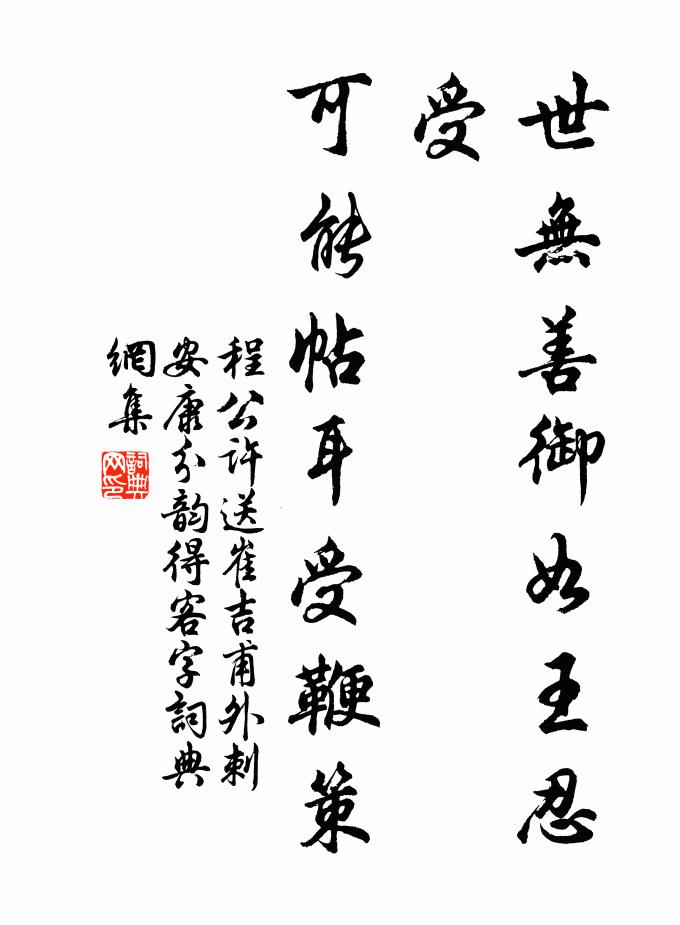 世無善御如王忍
受
可能帖耳受鞭策
程公許送崔吉甫外刺
安康分韵得客字詞典
網集
詞典
网印